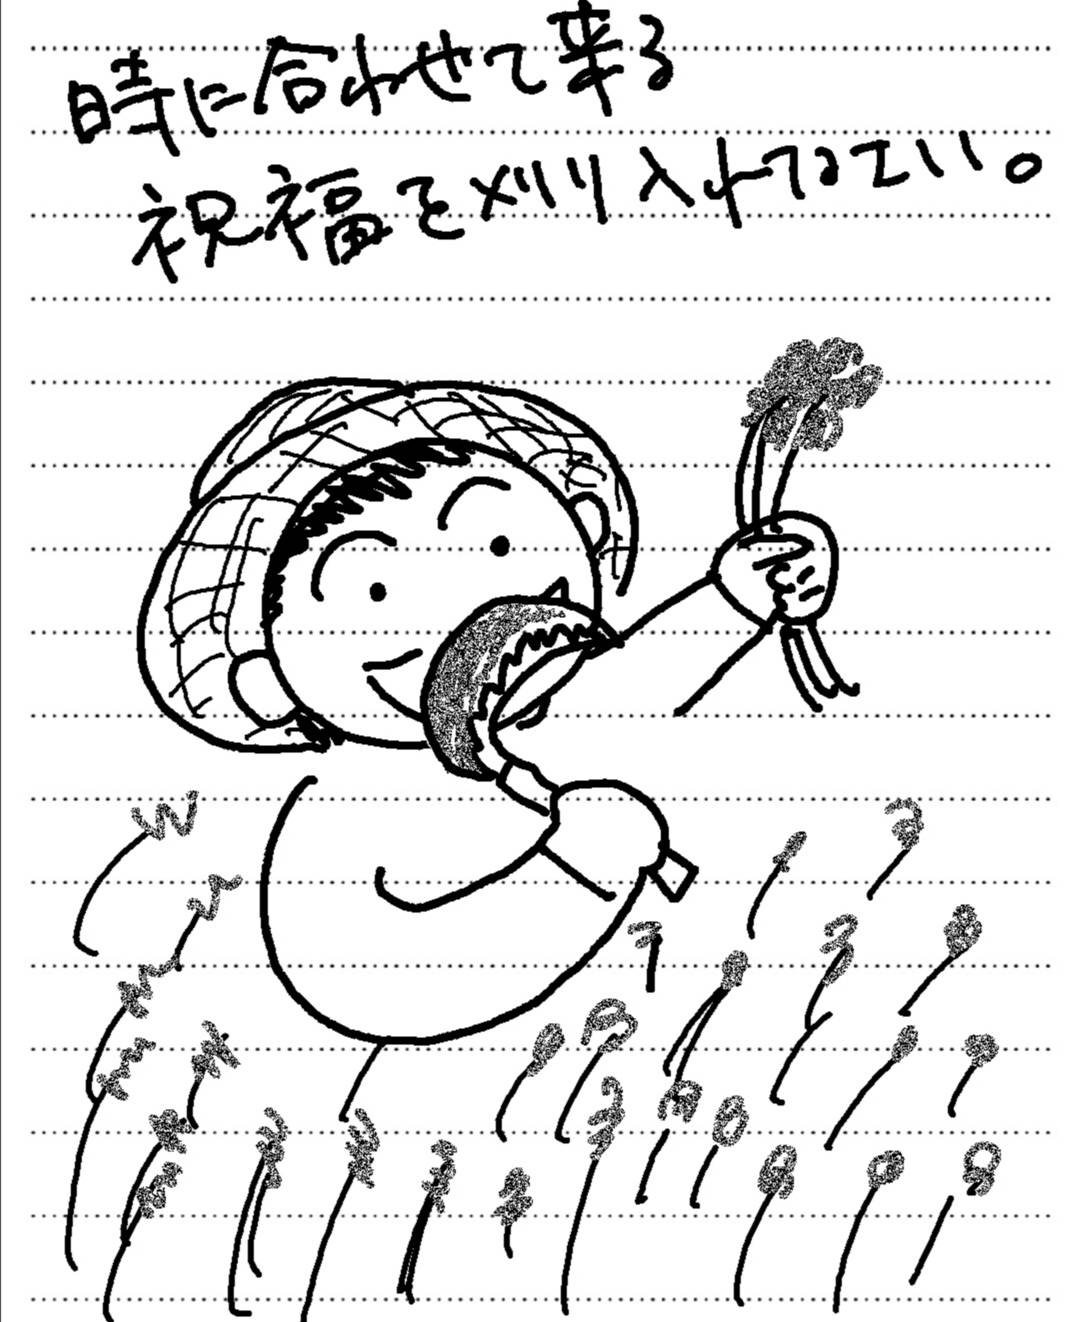 時に合わせて来る
祝福を刈り入れなさい。